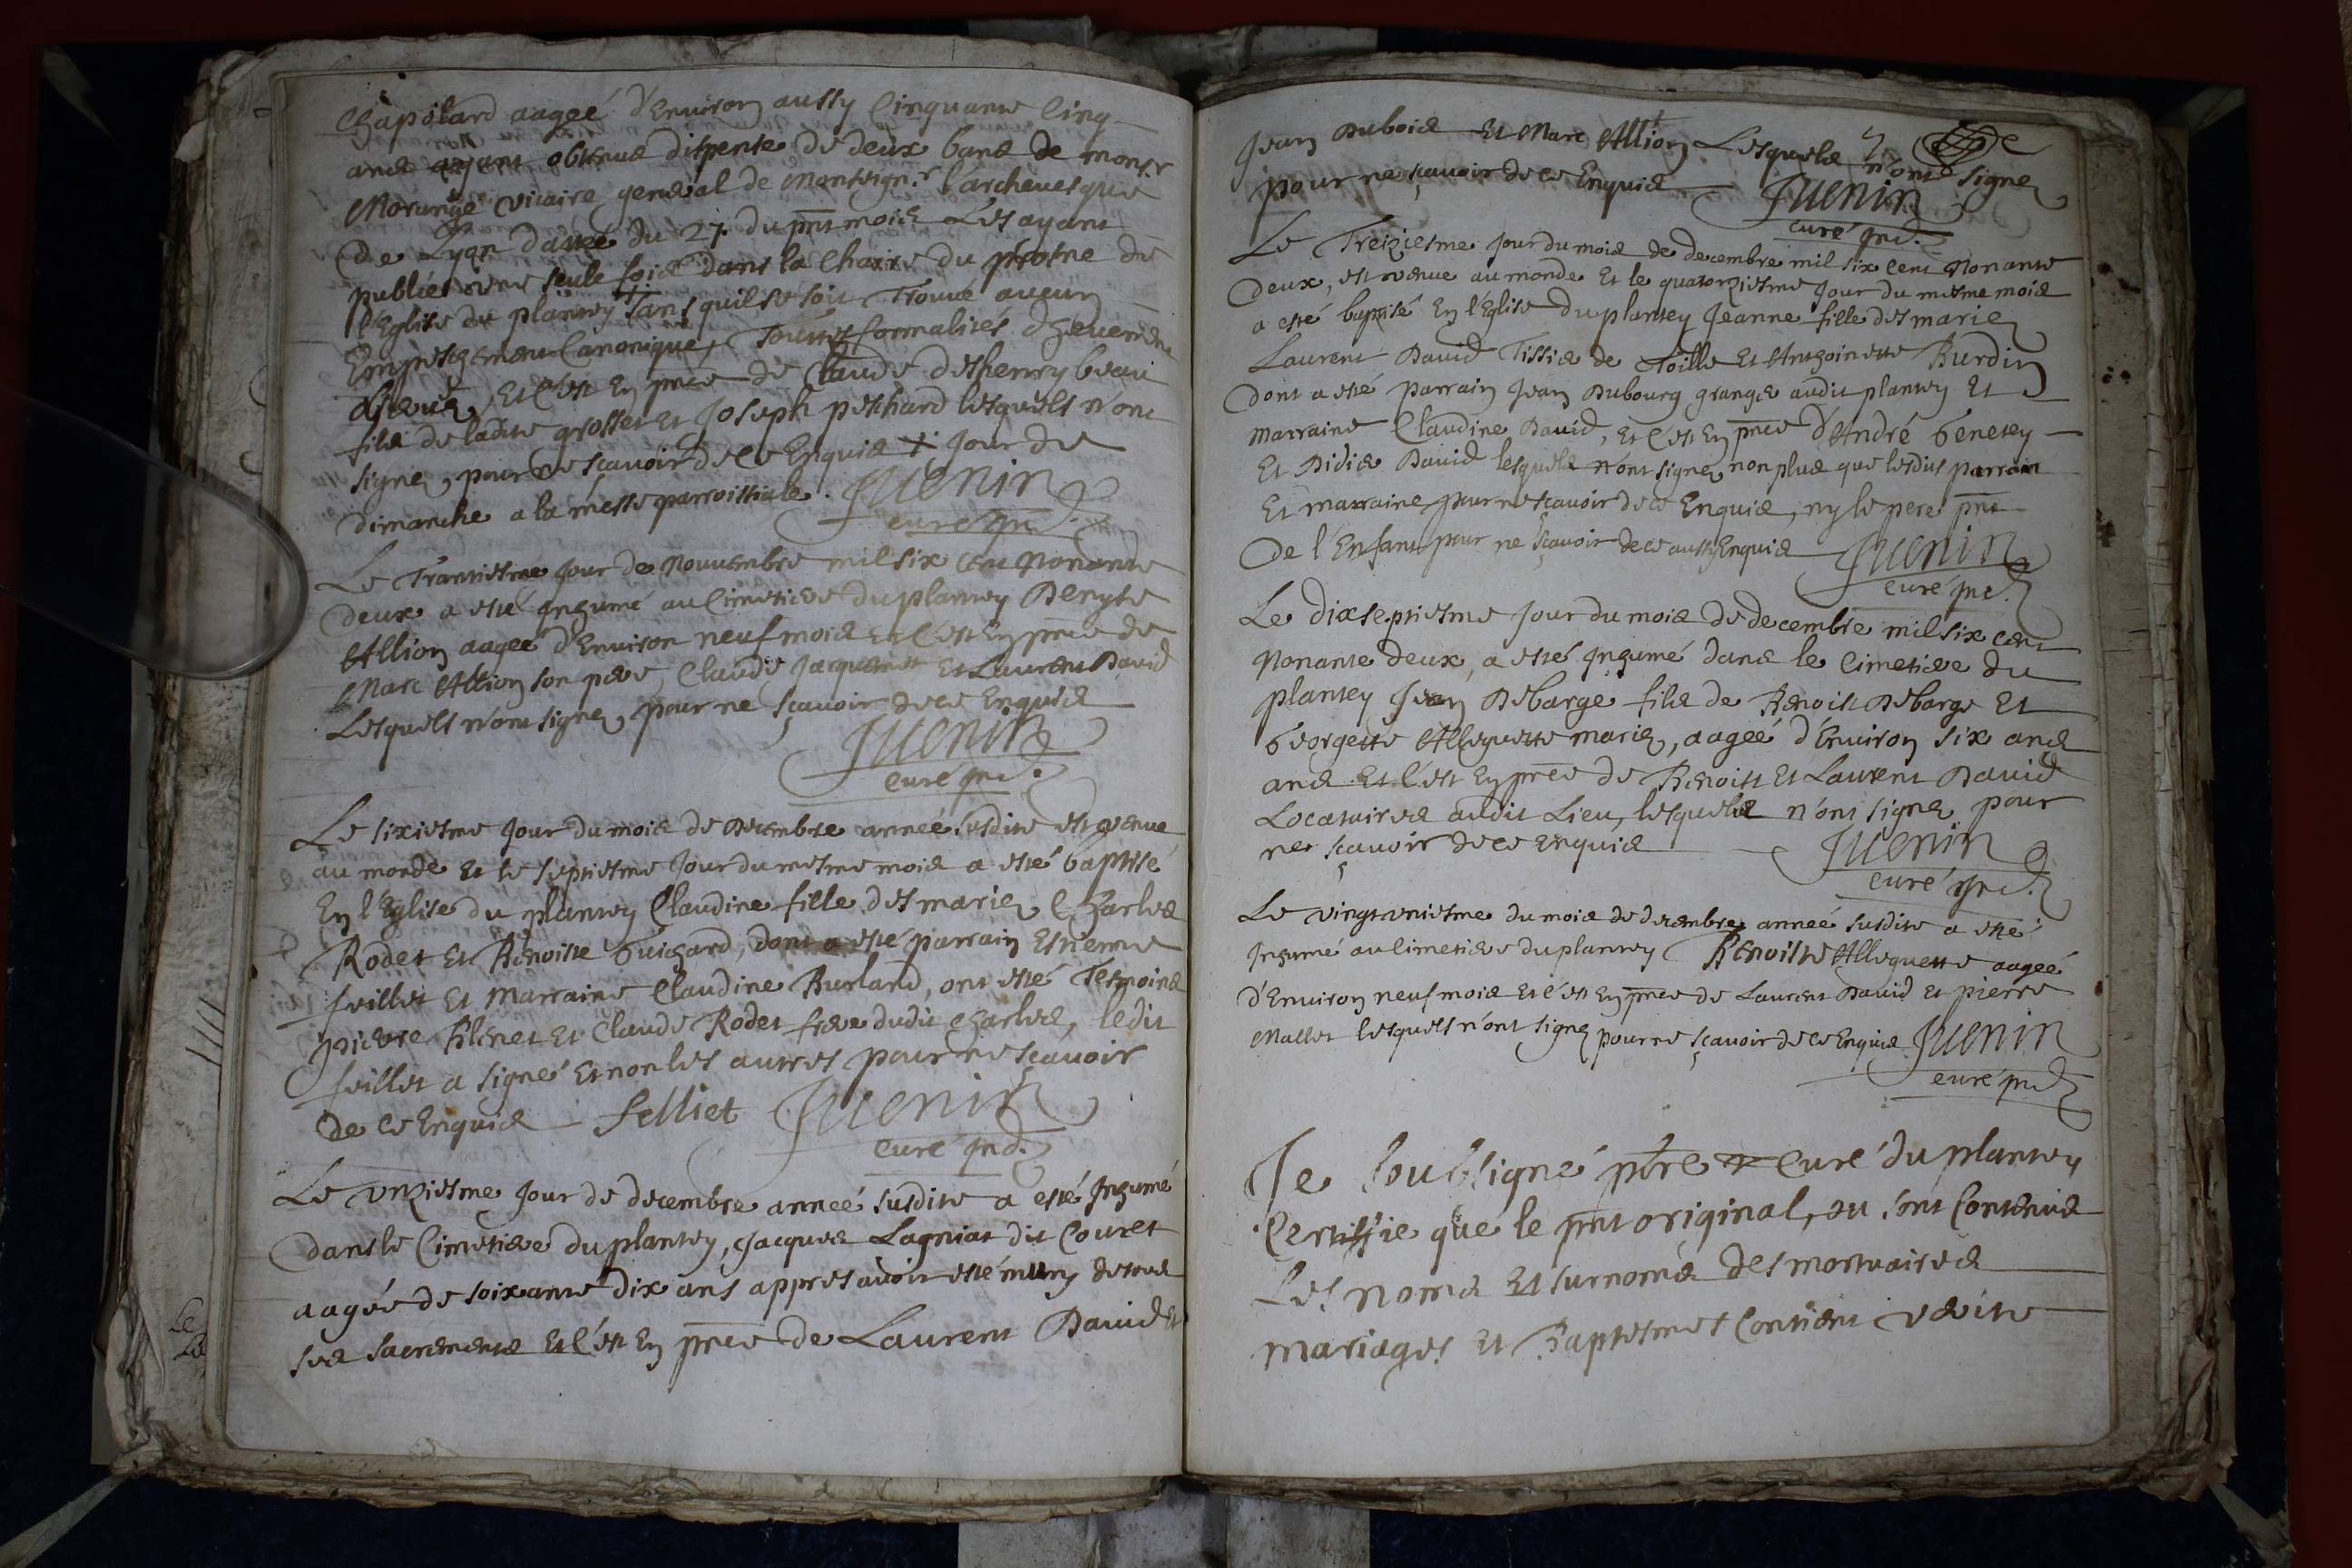 Chapolard aageé d'Environ aussy Cinquante Cinq
ans ayant obtenus dispense de deux bans de mons.r
Morange vicaire general de Monseign.r l'archeuesque
de Lyon datteé du 27. du pnt mois Les ayant
publiés une seule fois dans la Chaire du prosne de
l'Eglise du plantey sans quil se soit Trouué aucun
Empeschement Canonique, Touttes formalités
obserués, Et c'est En pnce de Claude beau
fils de ladite grosset Et Joseph peschard lesquels n'ont
signe, pour ne sçauoir de ce Enquis + Jour de
dimanche a la messe parroissiale. Juenin
curé
Le Trantiesme Jour de Nouuembre mil six Cent Nonante
deux a esté Inhumé au Cimetiere du plantey Denyse
Allion aageé d'Enuiron neuf mois Et c'est En pnce de
Marc Allion son pere, Claude Jacquemet Et Laurent Dauid
Lesquels n'ont signe, pour ne sçauoir de ce Enquis
Juenin
curé
Le sixiesme Jour du mois de Decembre anneé susdite est venue
au monde Et le septiesme Jour du mesme mois a esté baptisé
En l'Eglise du plantey Claudine fille des mariez Charles
Rodet Et Benoiste Guichard, dont a esté parrain Estienne
feillet Et Marraine Claudine Burland, ont esté Tesmoins
pierre Blenet Et Claude Rodet frere dudit Charles, ledit
feillet a signé Et non les autres pour ne scauoir
de ce Enquis felliet Juenin
curé
Le vnziesme Jour de decembre anneé susdite a esté Inhumé
dans le Cimetiere du plantey, Jacques Lagniat dit Couret
aagée de soixante dix ans appres auoir esté muny de tous
ses sacrements Et c'est En pnce de Laurent Dauid Et
Jean Dubois Et Marc Allion Lesquels n'ont signe
pour ne sçauoir de ce Enquis Juenin
curé
Le Treiziesme Jour du mois de decembre mil six cent Nonante
deux, est venue au monde Et le quatorziesme Jour du mesme mois
a esté baptisé En l'Eglise du plantey Jeanne fille des mariez
Laurent Dauid Tissier de Toille Et Anthoinette Burdin
dont a esté parrain Jean Dubourg granger audit plantey Et
marraine Claudine Dauid, Et c'est En pnce d'André Genetey
Et Didier Dauid lesquels n'ont signe, non plus que lesdits parrain
Et marraine pour ne scauoir de ce Enquis, ny le pere pnt
de l'Enfant pour ne sçauoir de ce aussy Enquis Juenin
curé
Le dixseptiesme Jour du mois de decembre mil six cent
Nonante deux, a esté Inhumé dans le Cimetiere du
plantey Jean Debarge fils de Benoist Debarge Et
Georgette Allequette mariez, aageé d'Enuiron six ans
ans Et c'est En pnce de Benoist Et Laurent Dauid
Locataires audit Lieu, lesquels n'ont signe, pour
ne sçauoir de ce Enquis Juenin
curé
Le vingtvniesme du mois de decembre anneé susdite a esté
Inhumé au Cimetiere du plantey Benoiste Allequette aageé
d'Enuiron neuf mois Et c'est En pnce de Laurent Dauid Et pierre
Mallet lesquels n'ont signe pour ne sçauoir de ce Enquis Juenin
curé
Je soubsigné pbre Curé du plantey
Certiffie que le pnt original, ou sont Contenus
Les noms Et surnoms des mortuaires
mariages Et Baptesmes Contient verité